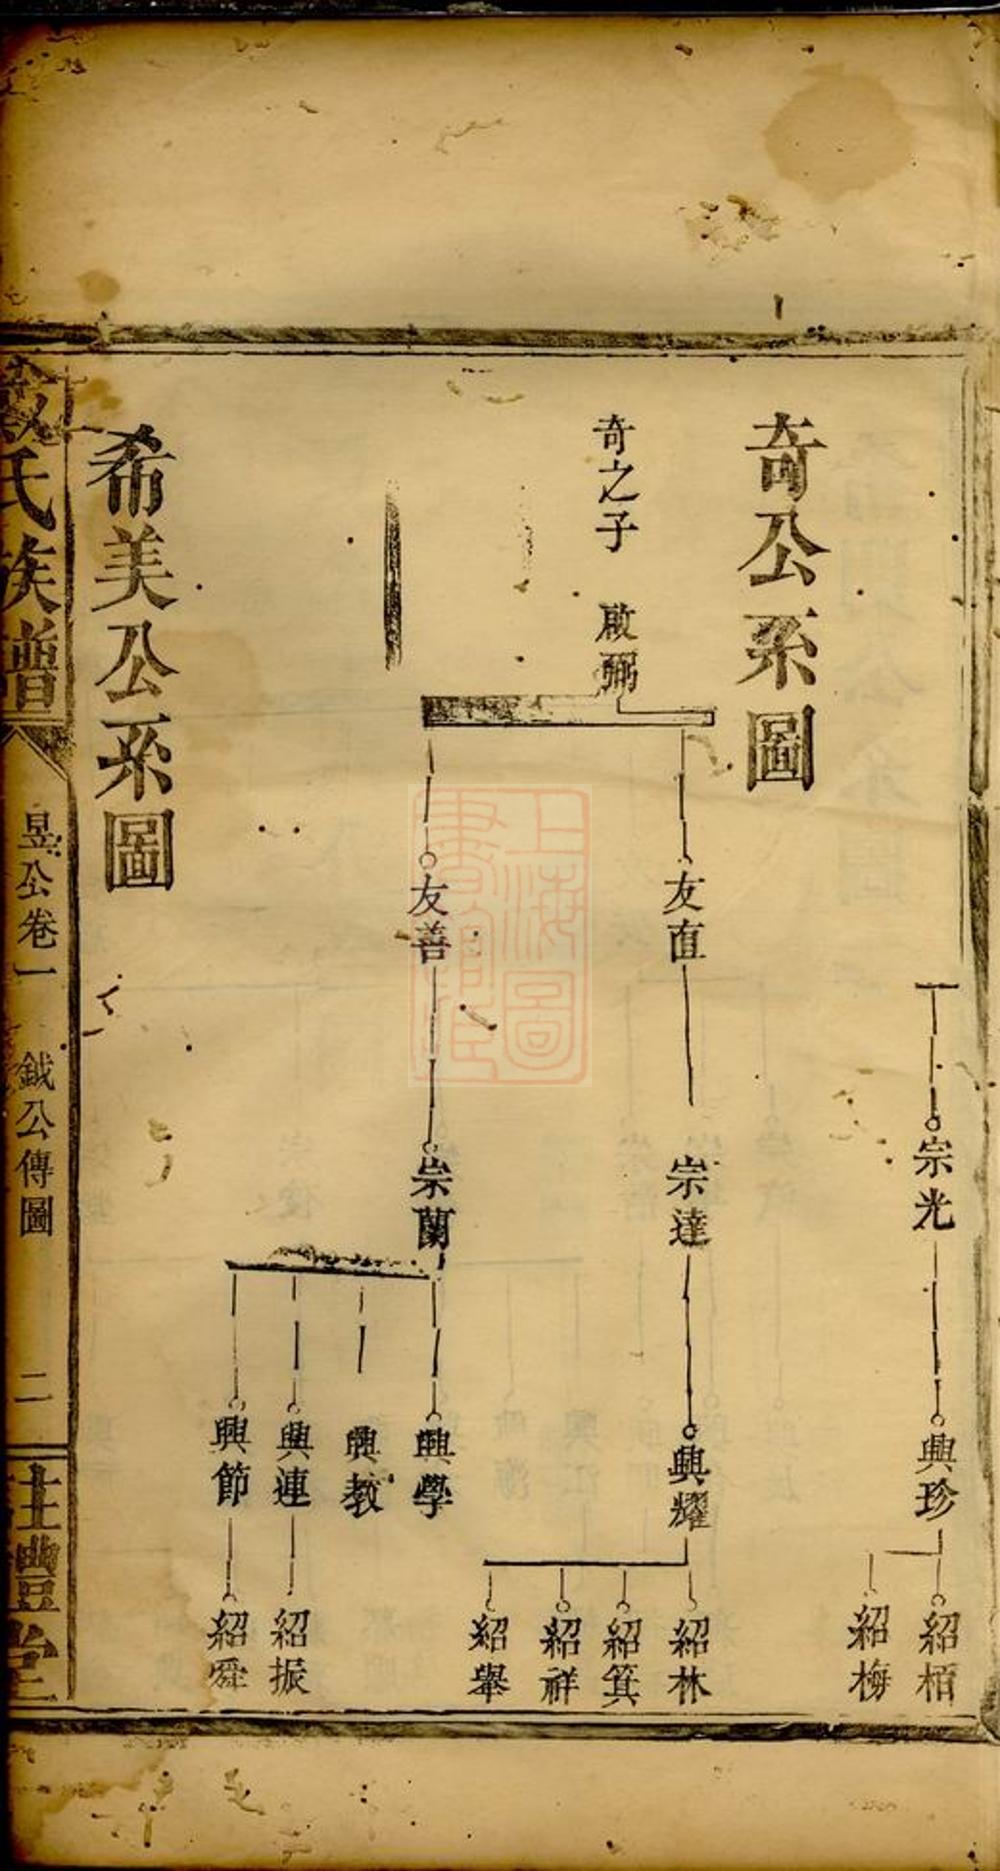 宗光
興珍
紹栢
紹梅
奇公系圖
奇之子 啟弼
友直
友善
宗達
崇蘭
興耀
興學
興教
興連
興節
紹林
紹箕
紹祥
紹舉
紹振
紹舜
希美公系圖
氏族譜
昱公卷一 鉞公傳圖 二
堂
上海圖書館藏